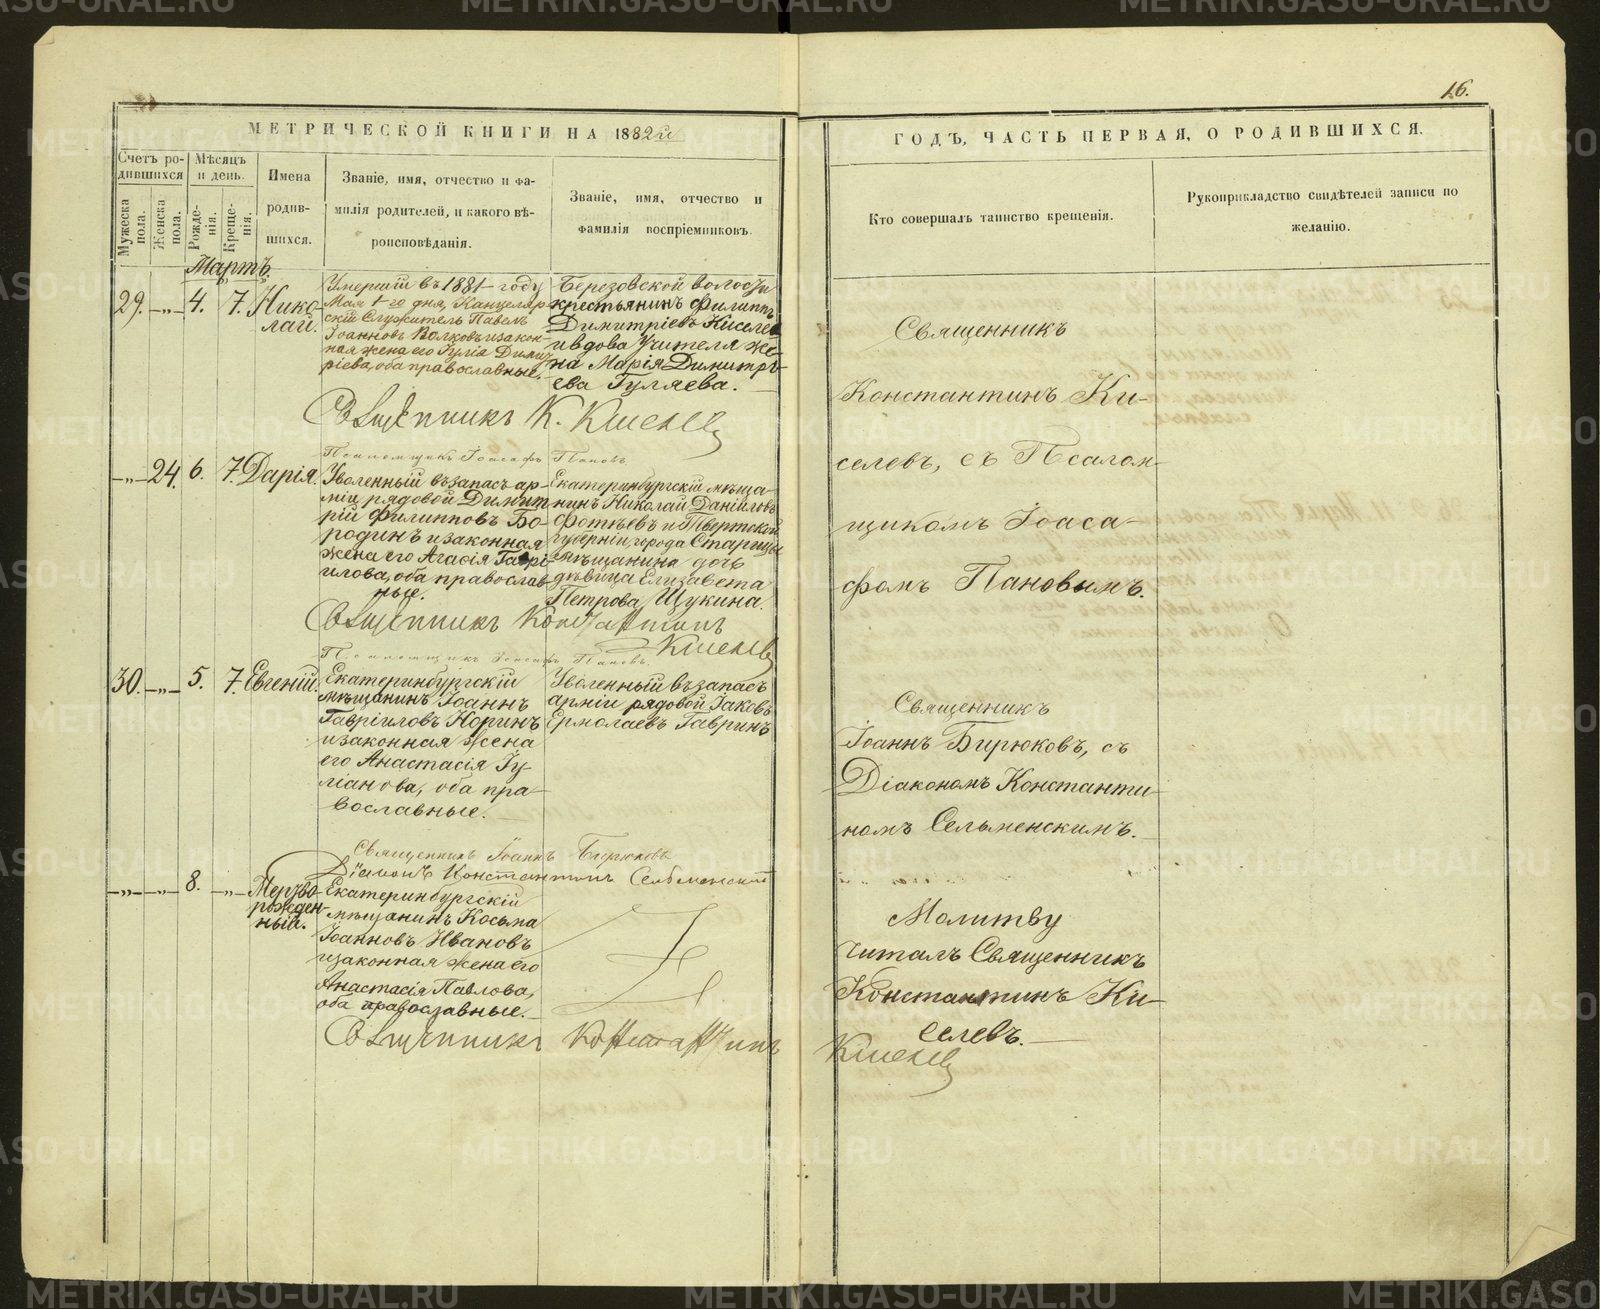 16.
МЕТРИЧЕСКОЙ КНИГИ НА 1882й
ГОДЪ, ЧАСТЬ ПЕРВАЯ, О РОДИВШИХСЯ.
Счетъ ро-
дившихся
Мужеска пола.
Женска пола.
Мѣсяцъ
и день.
Рожде-
нія.
Креще-
нія.
Имена
родив-
шихся.
Званіе, имя, отчество и фа-
милія родителей, и какого вѣ-
роисповѣданія.
Званіе, имя, отчество и
фамилія воспріемниковъ.
Кто совершалъ таинство крещенія.
Рукоприкладство свидѣтелей записи по
желанію.
Мартъ.
29. —„— 4. 7. Нико-
лай.
Умершій въ 1881 году
Мая 1-го дня, Канцеляр-
скій Служитель Павелъ
Іоанновъ Волковъ и закон-
ная жена его Іулія Димит-
ріева, оба православные.
Березовской волости
крестьянинъ Филиппъ
Димитріевъ Киселевъ
и вдова Учителя же-
на Марія Димитрі-
ева Гуляева.
Священникъ
Константинъ Ки-
селевъ, съ Псалом-
щикомъ Іоаса-
фомъ Пановымъ.
Священникъ К. Киселевъ
Псаломщикъ Іоасафъ Пановъ
—„— 24. 6. 7. Дарія.
Уволенный въ запасъ ар-
міи рядовой Димит-
рій Филипповъ Бо-
родинъ и законная
жена его Агафія Гаврі-
илова, оба православ-
ные.
Екатеринбургскій мѣща-
нинъ Николай Даніиловъ
Фотѣевъ и Тверской
губерніи, города Старицы
мѣщанина дочь
дѣвица Елизавета
Петрова Щукина.
Священникъ Константинъ
Киселевъ
Псаломщикъ Іоасафъ Пановъ.
30. —„— 5. 7. Евгеній.
Екатеринбургскій
мѣщанинъ Іоаннъ
Гавріиловъ Норинъ
и законная жена
его Анастасія Іу-
ліанова, оба пра-
вославные.
Уволенный въ запасъ
арміи рядовой Іаковъ
Ермолаевъ Гавринъ
Священникъ
Іоаннъ Бирюковъ, съ
Діакономъ Константи-
номъ Сельменскимъ.
Священникъ Іоаннъ Бирюковъ
Діаконъ Константинъ Сельменскій
—„— —„— 8. —„— Мертво-
рожден-
ный.
Екатеринбургскій
мѣщанинъ Косьма
Іоанновъ Ивановъ
и законная жена его
Анастасія Павлова,
оба православные.
Молитву
читалъ Священникъ
Константинъ Ки-
селевъ.
Священникъ Константинъ Киселевъ
METRIKI.GASO-URAL.RU